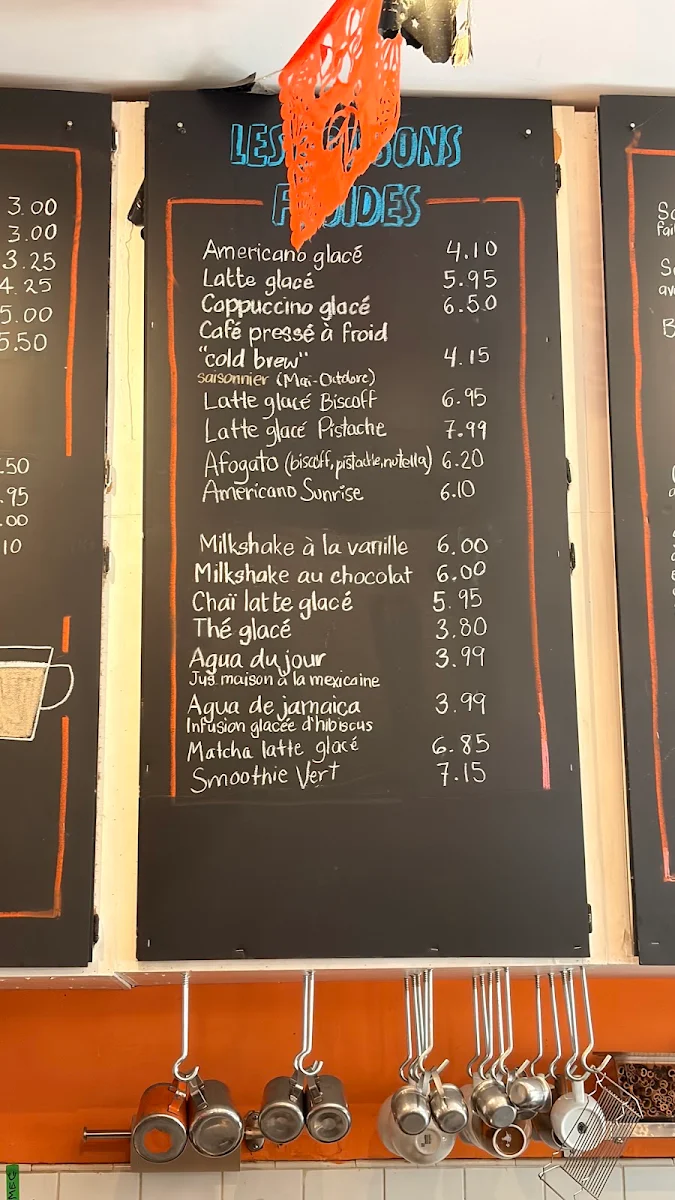 LES
FROIDES
Americano glacé 4.10
Latte glacé 5.95
Cappuccino glacé 6.50
Café pressé à froid
"cold brew" 4.15
saisonnier (Mai-Octobre)
Latte glacé Biscoff 6.95
Latte glacé Pistache 7.99
Afogato (biscoff, pistache, nutella) 6.20
Americano Sunrise 6.10
Milkshake à la vanille 6.00
Milkshake au chocolat 6.00
Chaï latte glacé 5.95
Thé glacé 3.80
Agua du jour 3.99
Jus maison à la mexicaine
Agua de jamaica 3.99
Infusion glacée d'hibiscus
Matcha latte glacé 6.85
Smoothie Vert 7.15
3.00
3.00
3.25
4.25
5.00
5.50
.50
.95
.00
10